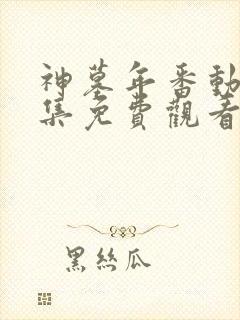 神墓年番動
集免費觀看
黑絲瓜